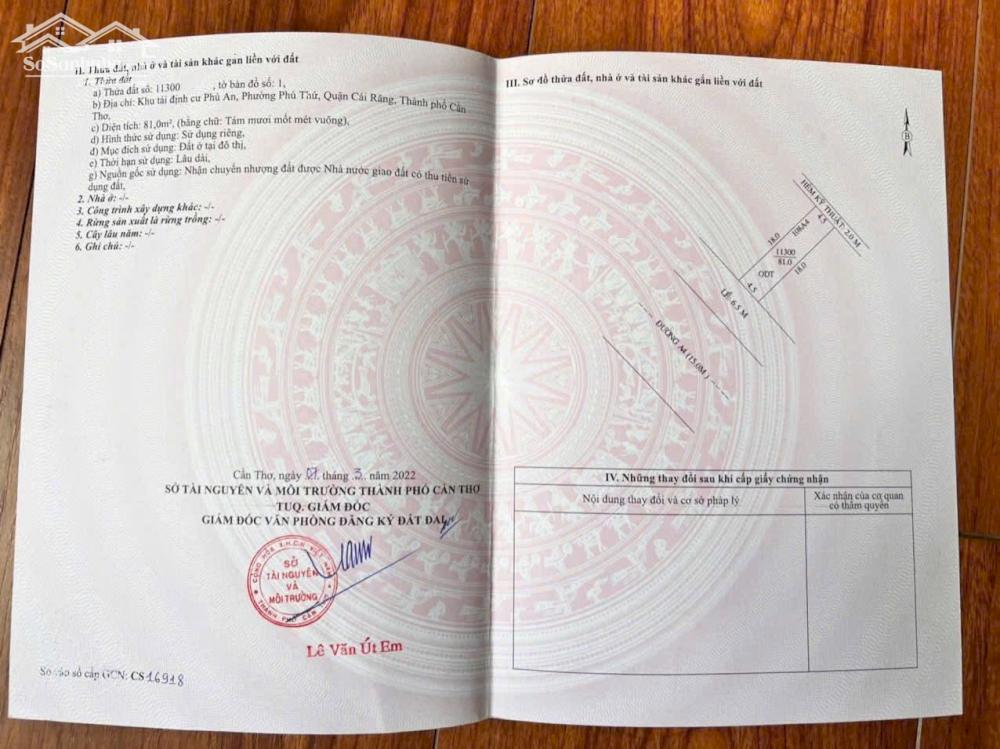 II. Thửa đất, nhà ở và tài sản khác gắn liền với đất
1. Thửa đất
a) Thửa đất số: 11300 , tờ bản đồ số: 1,
b) Địa chỉ: Khu tái định cư Phú An, Phường Phú Thứ, Quận Cái Răng, Thành phố Cần
Thơ,
c) Diện tích: 81,0m², (bằng chữ: Tám mươi mốt mét vuông),
d) Hình thức sử dụng: Sử dụng riêng,
đ) Mục đích sử dụng: Đất ở tại đô thị,
e) Thời hạn sử dụng: Lâu dài,
g) Nguồn gốc sử dụng: Nhận chuyển nhượng đất được Nhà nước giao đất có thu tiền sử
dụng đất,
2. Nhà ở: -/-
3. Công trình xây dựng khác: -/-
4. Rừng sản xuất là rừng trồng: -/-
5. Cây lâu năm: -/-
6. Ghi chú: -/-
Cần Thơ, ngày 07 tháng 3 năm 2022
SỞ TÀI NGUYÊN VÀ MÔI TRƯỜNG THÀNH PHỐ CẦN THƠ
TUQ. GIÁM ĐỐC
GIÁM ĐỐC VĂN PHÒNG ĐĂNG KÝ ĐẤT ĐAI
CỘNG HÒA X.H.C.N VIỆT NAM
SỞ
TÀI NGUYÊN
VÀ
MÔI TRƯỜNG
THÀNH PHỐ CẦN THƠ
Lê Văn Út Em
Số vào sổ cấp GCN: CS16918
III. Sơ đồ thửa đất, nhà ở và tài sản khác gắn liền với đất
B
HẺM KỸ THUẬT: 2.0 M
4.5
108A4
18.0
11300
81.0
18.0
ODT
4.5
LỀ: 6.5 M
ĐƯỜNG A4 (15.0M)
IV. Những thay đổi sau khi cấp giấy chứng nhận
Nội dung thay đổi và cơ sở pháp lý
Xác nhận của cơ quan
có thẩm quyền